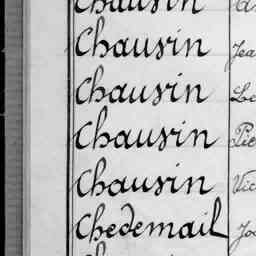 Chausin
Chausin Jea
Chausin Lo
Chausin Pie
Chausin Vic
Chedemail Jo